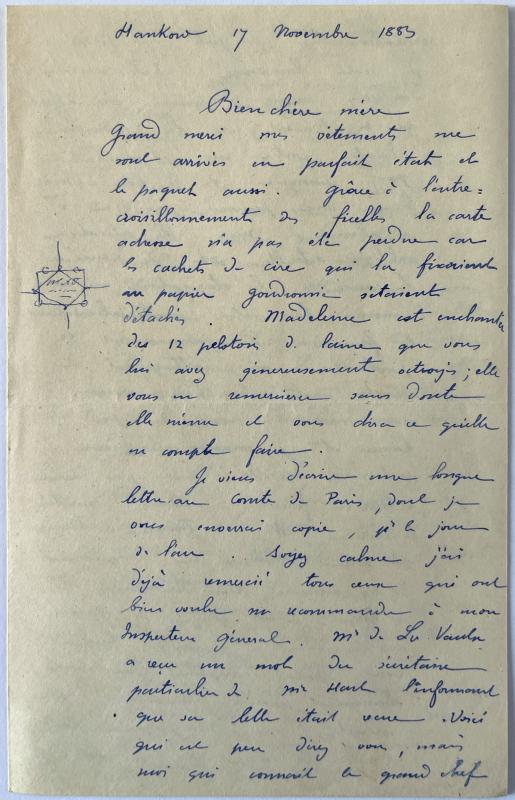 Hankow 17 Novembre 1885
Bien chère mère
Grand merci mes vêtements me
sont arrivés en parfait état et
le paquet aussi. Grâce à l'entre=
croisillonnement des ficelles la carte
adresse n'a pas été perdue car
les cachets de cire qui la fixaient
au papier goudronné s'étaient
détachés. Madeleine est enchantée
des 12 pelotons de laine que vous
lui avez généreusement octroyés ; elle
vous en remerciera sans doute
elle même et vous dira ce qu'elle
en compte faire.
Je viens d'écrire une longue
lettre au Comte de Paris, dont je
vous enverrai copie, pr le jour
de l'an. Soyez calme j'ai
déjà remercié tous ceux qui ont
bien voulu me recommander à mon
Inspecteur général. Mr de La Vaulx
a reçu un mot du secrétaire
particulier de Mr Hart l'informant
que sa lettre était venue. Voici
qui est peu direz vous, mais
moi qui connait le grand chef